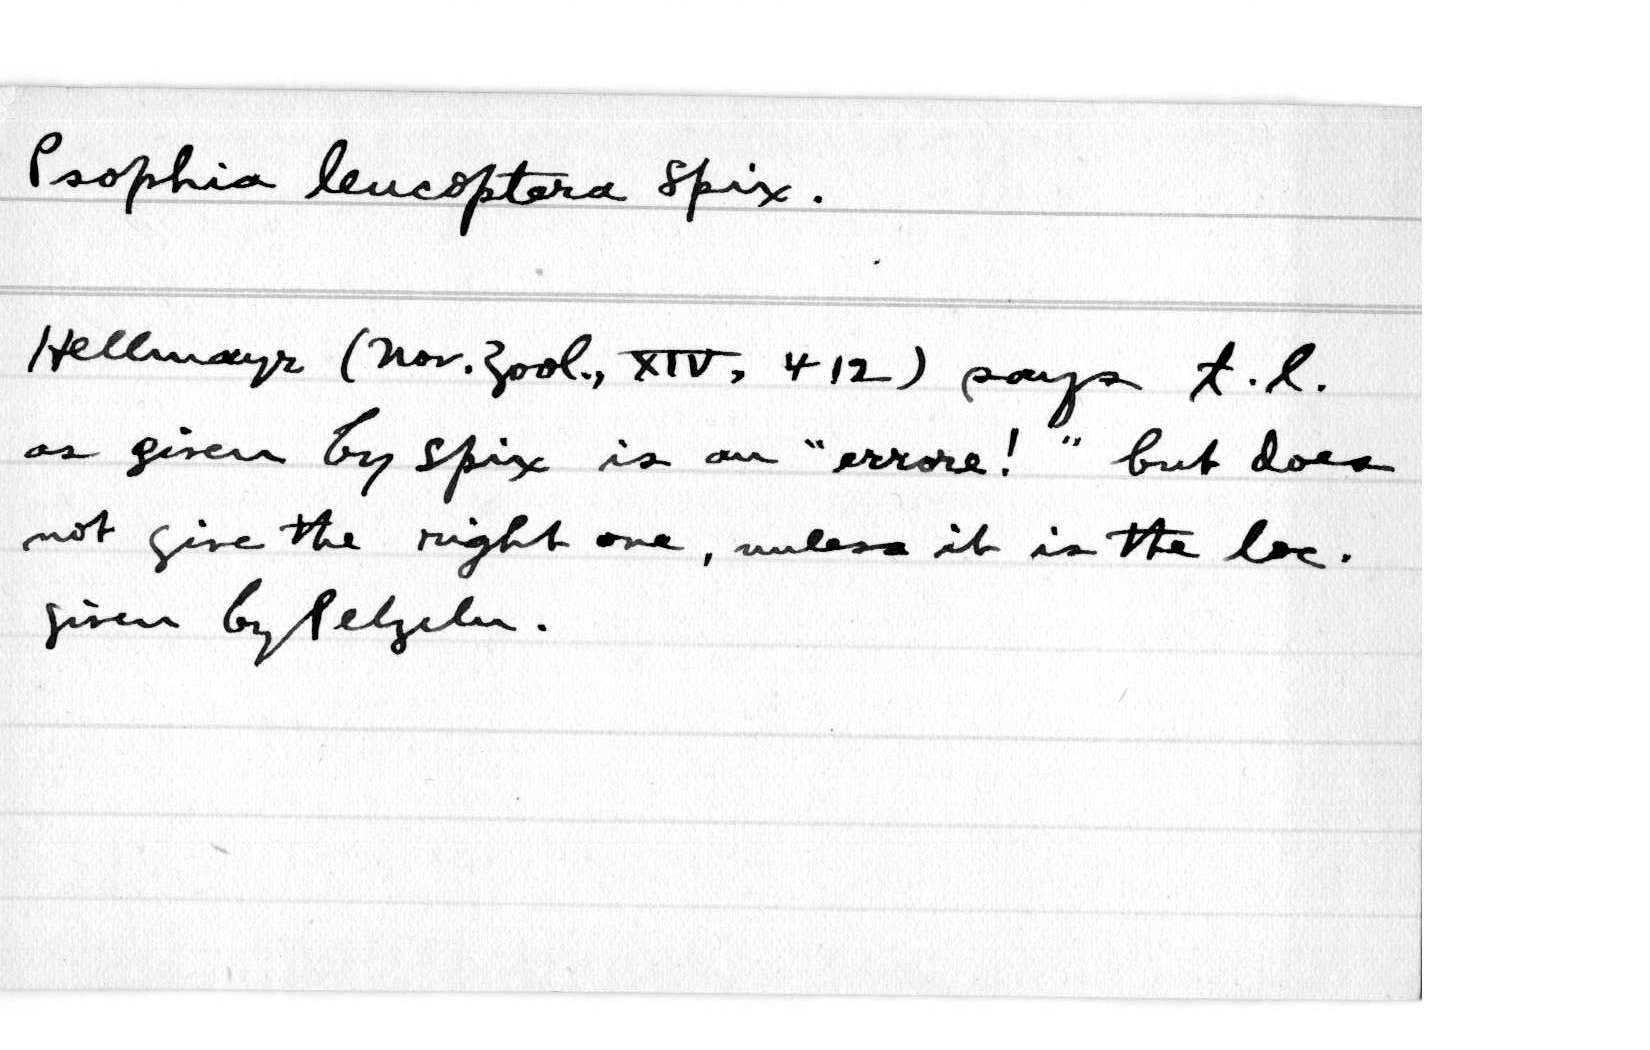 Psophia leucoptera Spix.
Hellmayr (Nov. Zool., XIV, 412) says t.l.
as given by Spix is an "errore!" but does
not give the right one, unless it is the loc.
given by Pelzeln.